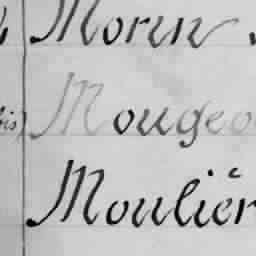 Morin
bis) Mougeo
Mouliér